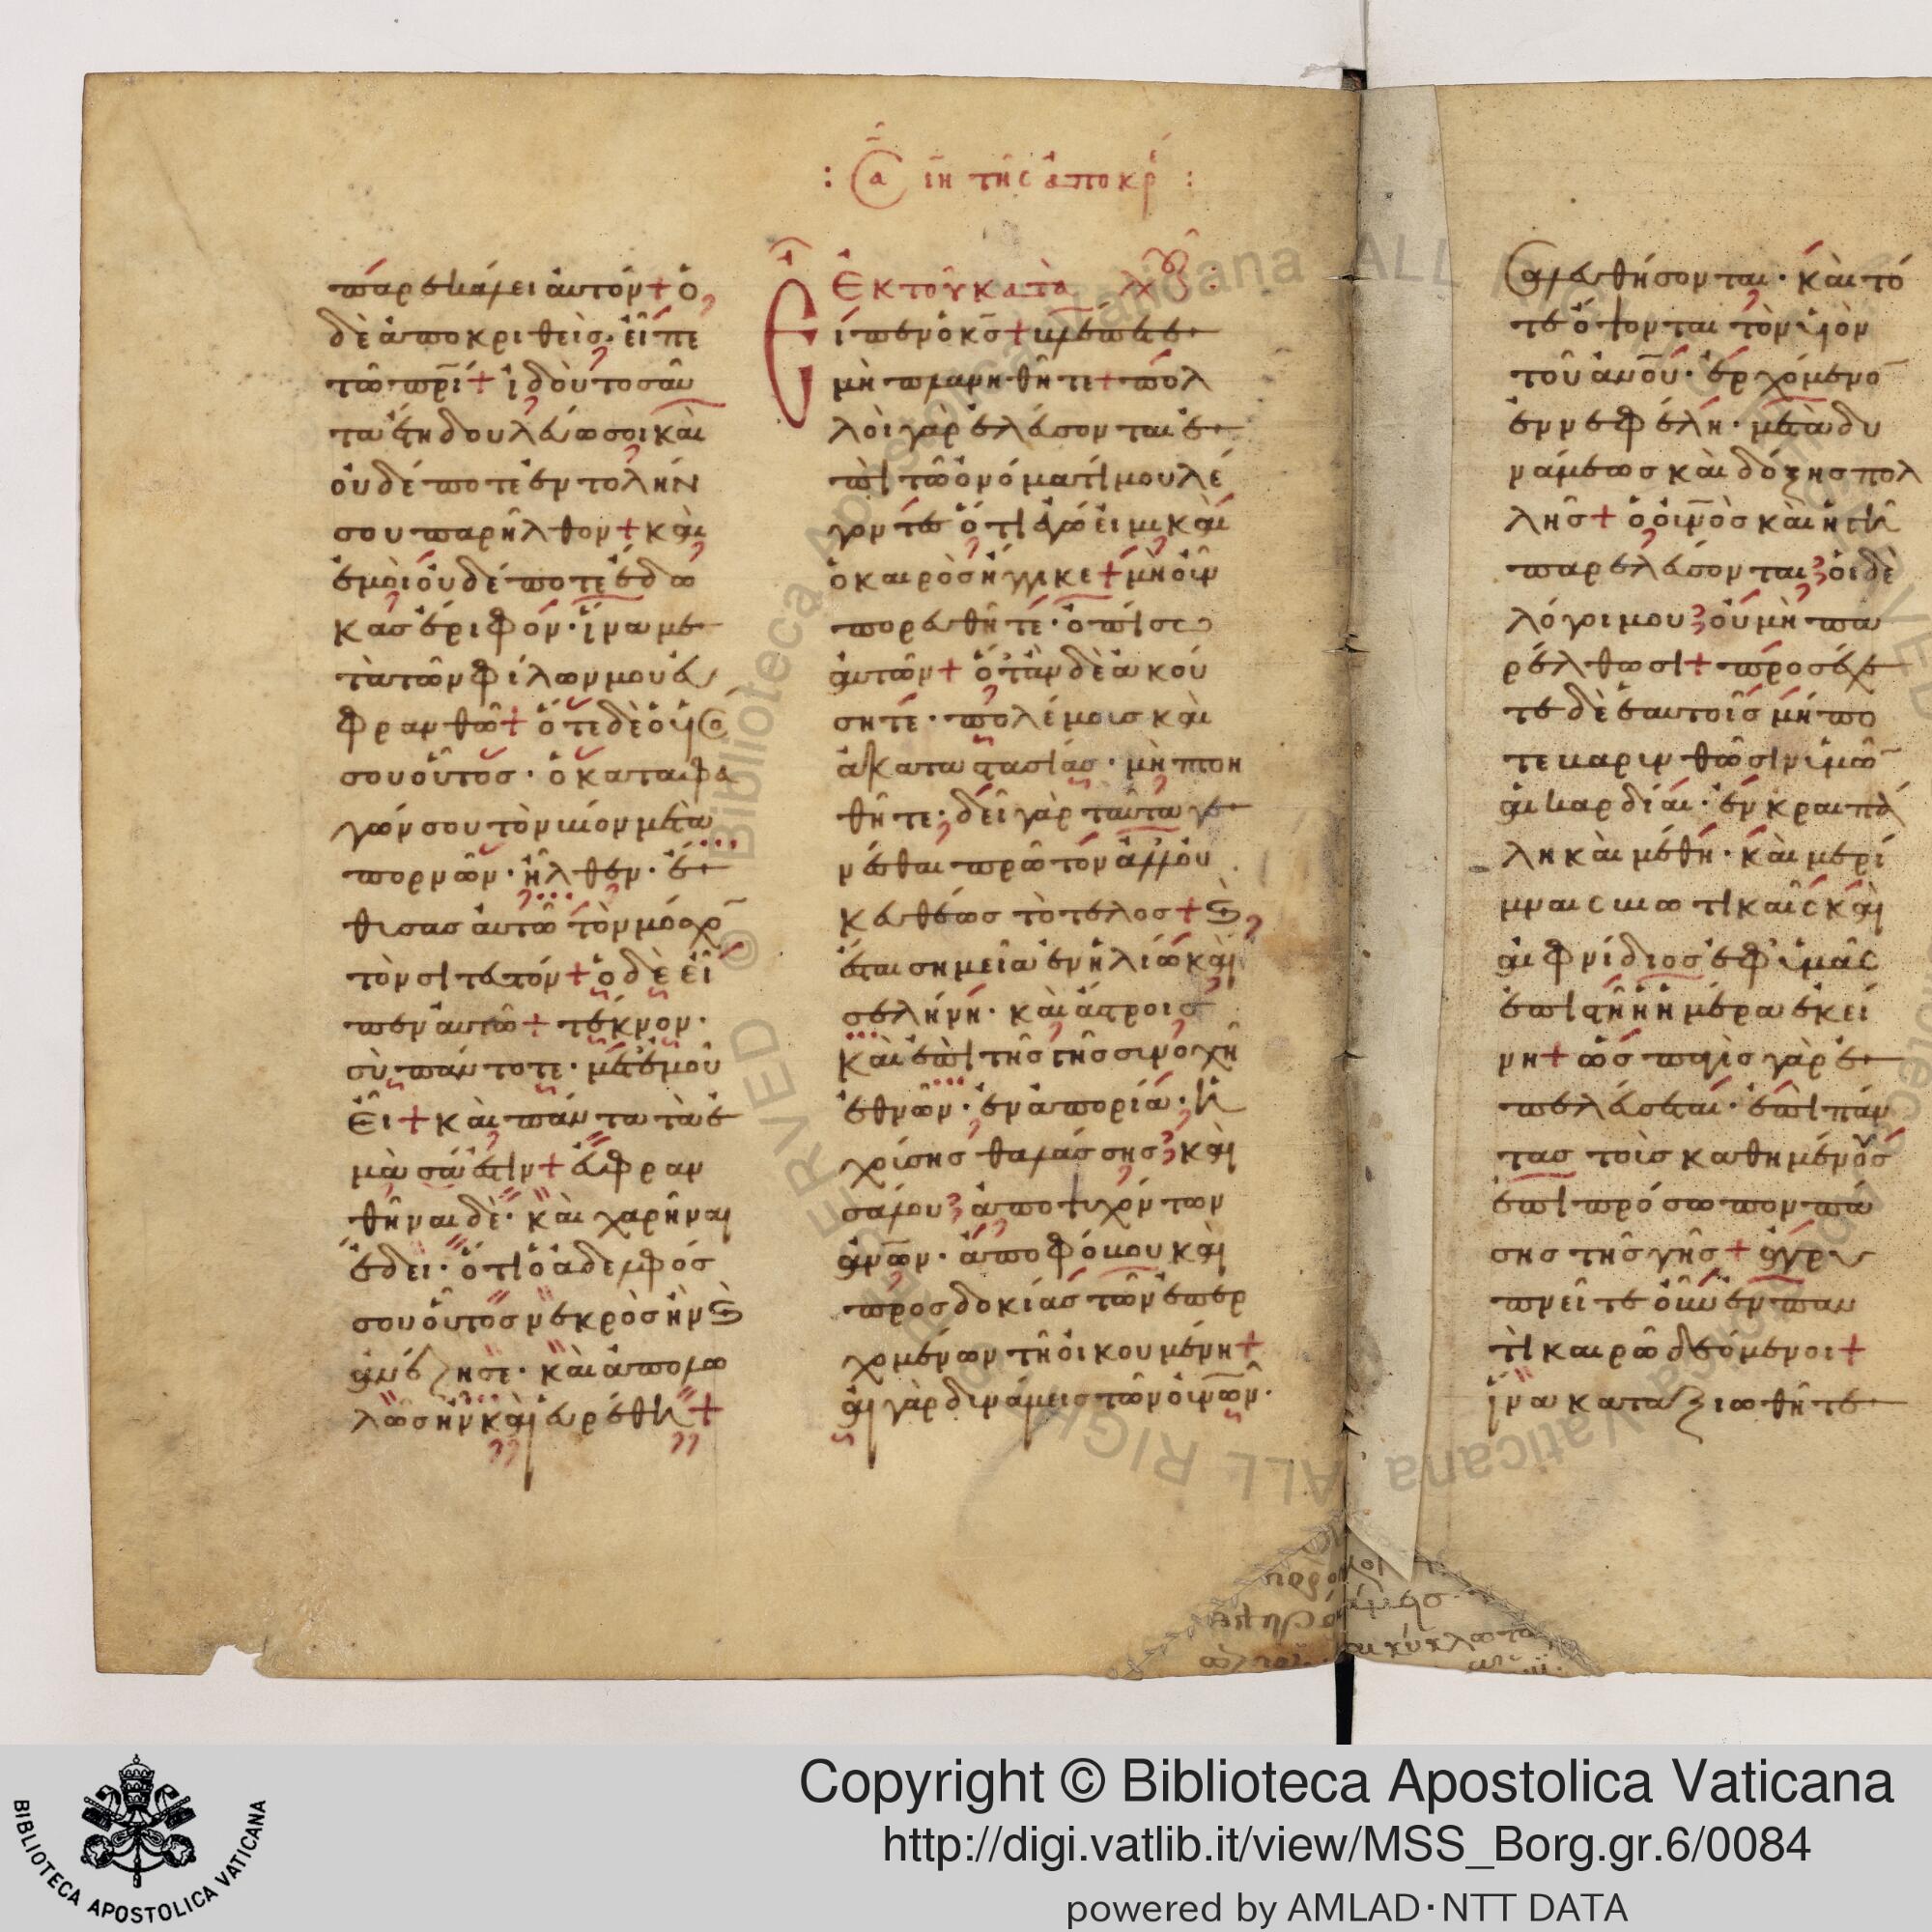 παρεκάλει ἀυτόν + ὁ
δὲ ἀποκριθεὶσ· εἶπε
τῶ πρ̅ι + ἰδοὺ τοσαῦ
τα ἔτη δουλεύω σοι καὶ
οὐδέποτε ἐντολήν
σου παρῆλθον + καὶ
ἐμοὶ οὐδέποτε ἔδω
κασ ἔριφον· ἵνα με
τὰ τῶν φίλων μου ἐυ
φρανθῶ + ὅτε δὲ ὁ υἱόσ
σου οὗτοσ· ὁ καταφα
γών σου τὸν βίον μετὰ
πορνῶν· ἦλθεν· ἔ
θυσασ ἀυτῶ τὸν μόσχο̅
τὸν σιτευτόν + ὁ δὲ εἶ
πεν ἀυτῶ + τέκνον·
σὺ πάντοτε· μετ ἐμοῦ
εἶ + καὶ πάντα τὰ ἐ
μὰ σά ἐστιν + ἐυφραν
θῆναι δὲ· καὶ χαρῆναι
ἔδει· ὅτι ὁ ἀδελφόσ
σου οὗτοσ νεκρὸσ ἦν ϗ
ἀνέζησε· καὶ ἀπολω
λὼσ ἦν καὶ ἑυρέθη +
: Σα α ιη τῆς ἀποκρ :
Ἐκ τοῦ κατὰ λχ :
Εἶπεν ὁ κ̅σ + βλέπετε
μὴ πλανηθῆτε + πολ
λοὶ γὰρ ἐλεύσονται ἐ
πὶ τῶ ὀνόματί μου λέ
γοντες ὅτι ἐγώ εἰμι καὶ
ὁ καιρὸσ ἤγγικε + μὴ οὖν
πορευθῆτε· ὀπίσω
ἀυτῶν + ὅταν δὲ ἀκού
σητε· πολέμοισ καὶ
ἀκαταστασίασ· μὴ πτοη
θῆτε· δεῖ γὰρ ταῦτα γε
νέσθαι πρῶτον ἀλλ οὐ
κ ευθέωσ τὸ τέλοσ + ϗ
ἔσται σημεῖα ἐν ἡλίω καὶ
σελήνη· καὶ ἄστροισ
καὶ ἐπὶ τῆσ γῆσ συνοχὴ
ἐθνῶν· ἐν ἀπορία· ἠ
χούσησ θαλάσσησ καὶ
σάλου ἀποψυχόντων
ἀν̅ων· ἀπὸ φόβου καὶ
προσδοκίασ τῶν ἐπερ
χομένων τῆ οἰκουμένη +
αἱ γὰρ δυνάμεισ τῶν οὐν̅ων·
σαλευθήσονται· καὶ τό
τε ὄψονται τὸν υἱὸν
τοῦ ἀν̅ου· ἐρχόμενο̅
ἐν νεφέλη· μετὰ δυ
νάμεωσ καὶ δόξησ πολ
λῆσ + ὁ οὐν̅ὸσ καὶ ἡ γῆ
παρελεύσονται οἱ δὲ
λόγοι μου οὐ μὴ πα
ρέλθωσι + προσέχε
τε δὲ ἑαυτοῖσ μήπο
τε βαρυνθῶσιν ὑμῶ̅
αἱ καρδίαι· ἐν κραιπά
λη καὶ μέθη· καὶ μερί
μναις βιωτικαῖς καὶ
αἰφνίδιοσ ἐφ ὑμᾶς
ἐπιστῆ ἡ ἡμέρα ἐκεί
νη + ὡσ παγὶσ γὰρ ἐ
πελεύσεται· ἐπὶ πάν
τασ τοὺσ καθημένουσ
ἐπὶ πρόσωπον πά
σησ τῆσ γῆσ + ἀγρυ
πνεῖτε οὖν ἐν παν
τὶ καιρῶ δεόμενοι +
ἵνα καταξιωθῆτε
BIBLIOTECA APOSTOLICA VATICANA
Copyright © Biblioteca Apostolica Vaticana
http://digi.vatlib.it/view/MSS_Borg.gr.6/0084
powered by AMLAD·NTT DATA